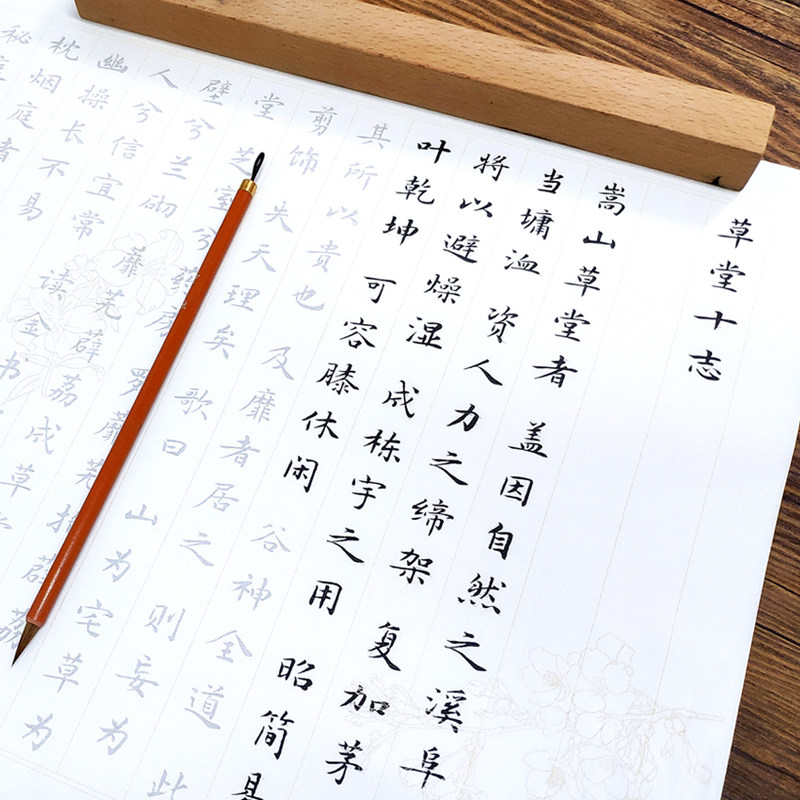 草堂十志
嵩山草堂者 盖因自然之溪阜
当墉洫 资人力之缔架 复加茅
将以避燥湿 成栋宇之用 昭简易
叶乾坤 可容膝休闲 谷神全道 此
其所以贵也 及靡者居之 则妄为
剪饰 失天理矣 歌曰 山为宅草为
堂 芝室兮药房 罗蘼芜拍薜荔
壁兮兰砌 蘼芜薜荔成草
人兮信宜常 读金书
幽操长不易
枕烟庭者
秘